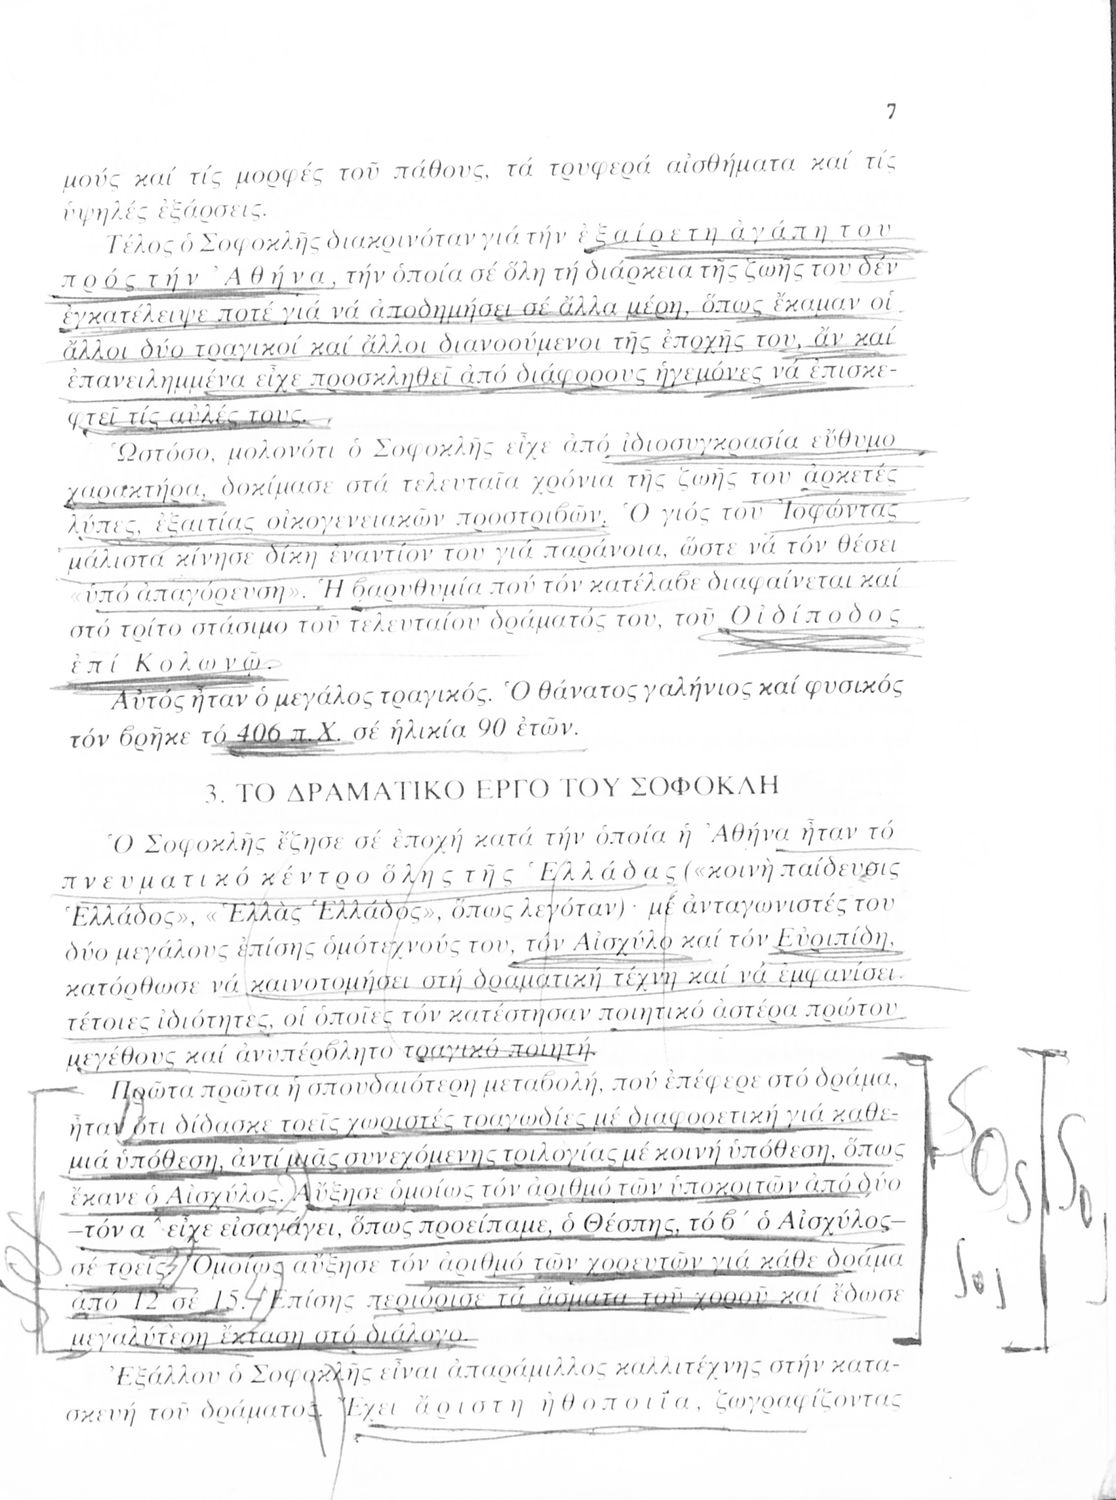 7
μούς καί τίς μορφές τοῦ πάθους, τά τρυφερά αἰσθήματα καί τίς
ὑψηλές ἐξάρσεις.
Τέλος ὁ Σοφοκλῆς διακρινόταν γιά τήν ἐξαίρετη ἀγάπη του
πρός τήν Ἀθήνα, τήν ὁποία σέ ὅλη τή διάρκεια τῆς ζωῆς του δέν
ἐγκατέλειψε ποτέ γιά νά ἀποδημήσει σέ ἄλλα μέρη, ὅπως ἔκαμαν οἱ
ἄλλοι δύο τραγικοί καί ἄλλοι διανοούμενοι τῆς ἐποχῆς του, ἄν καί
ἐπανειλημμένα εἶχε προσκληθεῖ ἀπό διάφορους ἡγεμόνες νά ἐπισκε-
φτεῖ τίς αὐλές τους.
Ὡστόσο, μολονότι ὁ Σοφοκλῆς εἶχε ἀπό ἰδιοσυγκρασία εὔθυμο
χαρακτήρα, δοκίμασε στά τελευταῖα χρόνια τῆς ζωῆς του ἀρκετές
λύπες, ἐξαιτίας οἰκογενειακῶν προστριβῶν. Ὁ γιός του Ἰοφώντας
μάλιστα κίνησε δίκη ἐναντίον του γιά παράνοια, ὥστε νά τόν θέσει
«ὑπό ἀπαγόρευση». Ἡ βαρυθυμία πού τόν κατέλαβε διαφαίνεται καί
στό τρίτο στάσιμο τοῦ τελευταίου δράματός του, τοῦ Οἰδίποδος
ἐπί Κολωνῷ.
Αὐτός ἦταν ὁ μεγάλος τραγικός. Ὁ θάνατος γαλήνιος καί φυσικός
τόν βρῆκε τό 406 π.Χ. σέ ἡλικία 90 ἐτῶν.
3. ΤΟ ΔΡΑΜΑΤΙΚΟ ΕΡΓΟ ΤΟΥ ΣΟΦΟΚΛΗ
Ὁ Σοφοκλῆς ἔζησε σέ ἐποχή κατά τήν ὁποία ἡ Ἀθήνα ἦταν τό
πνευματικό κέντρο ὅλης τῆς Ἑλλάδας («κοινὴ παίδευσις
Ἑλλάδος», «Ἑλλὰς Ἑλλάδος», ὅπως λεγόταν)· μέ ἀνταγωνιστές του
δύο μεγάλους ἐπίσης ὁμότεχνούς του, τόν Αἰσχύλο καί τόν Εὐριπίδη,
κατόρθωσε νά καινοτομήσει στή δραματική τέχνη καί νά ἐμφανίσει
τέτοιες ἰδιότητες, οἱ ὁποῖες τόν κατέστησαν ποιητικό ἀστέρα πρώτου
μεγέθους καί ἀνυπέρβλητο τραγικό ποιητή.
Πρῶτα πρῶτα ἡ σπουδαιότερη μεταβολή, πού ἐπέφερε στό δράμα,
ἦταν ὅτι δίδασκε τρεῖς χωριστές τραγωδίες μέ διαφορετική γιά καθε-
μιά ὑπόθεση, ἀντί μιᾶς συνεχόμενης τριλογίας μέ κοινή ὑπόθεση, ὅπως
ἔκανε ὁ Αἰσχύλος. Αὔξησε ὁμοίως τόν ἀριθμό τῶν ὑποκριτῶν ἀπό δύο
–τόν α΄ εἶχε εἰσαγάγει, ὅπως προείπαμε, ὁ Θέσπης, τό β΄ ὁ Αἰσχύλος–
σέ τρεῖς. Ὁμοίως αὔξησε τόν ἀριθμό τῶν χορευτῶν γιά κάθε δράμα
ἀπό 12 σέ 15. Ἐπίσης περιόρισε τά ἄσματα τοῦ χοροῦ καί ἔδωσε
μεγαλύτερη ἔκταση στό διάλογο.
Ἐξάλλου ὁ Σοφοκλῆς εἶναι ἀπαράμιλλος καλλιτέχνης στήν κατα-
σκευή τοῦ δράματος. Ἔχει ἄριστη ἠθοποιΐα, ζωγραφίζοντας
SOS
SOS
SOS